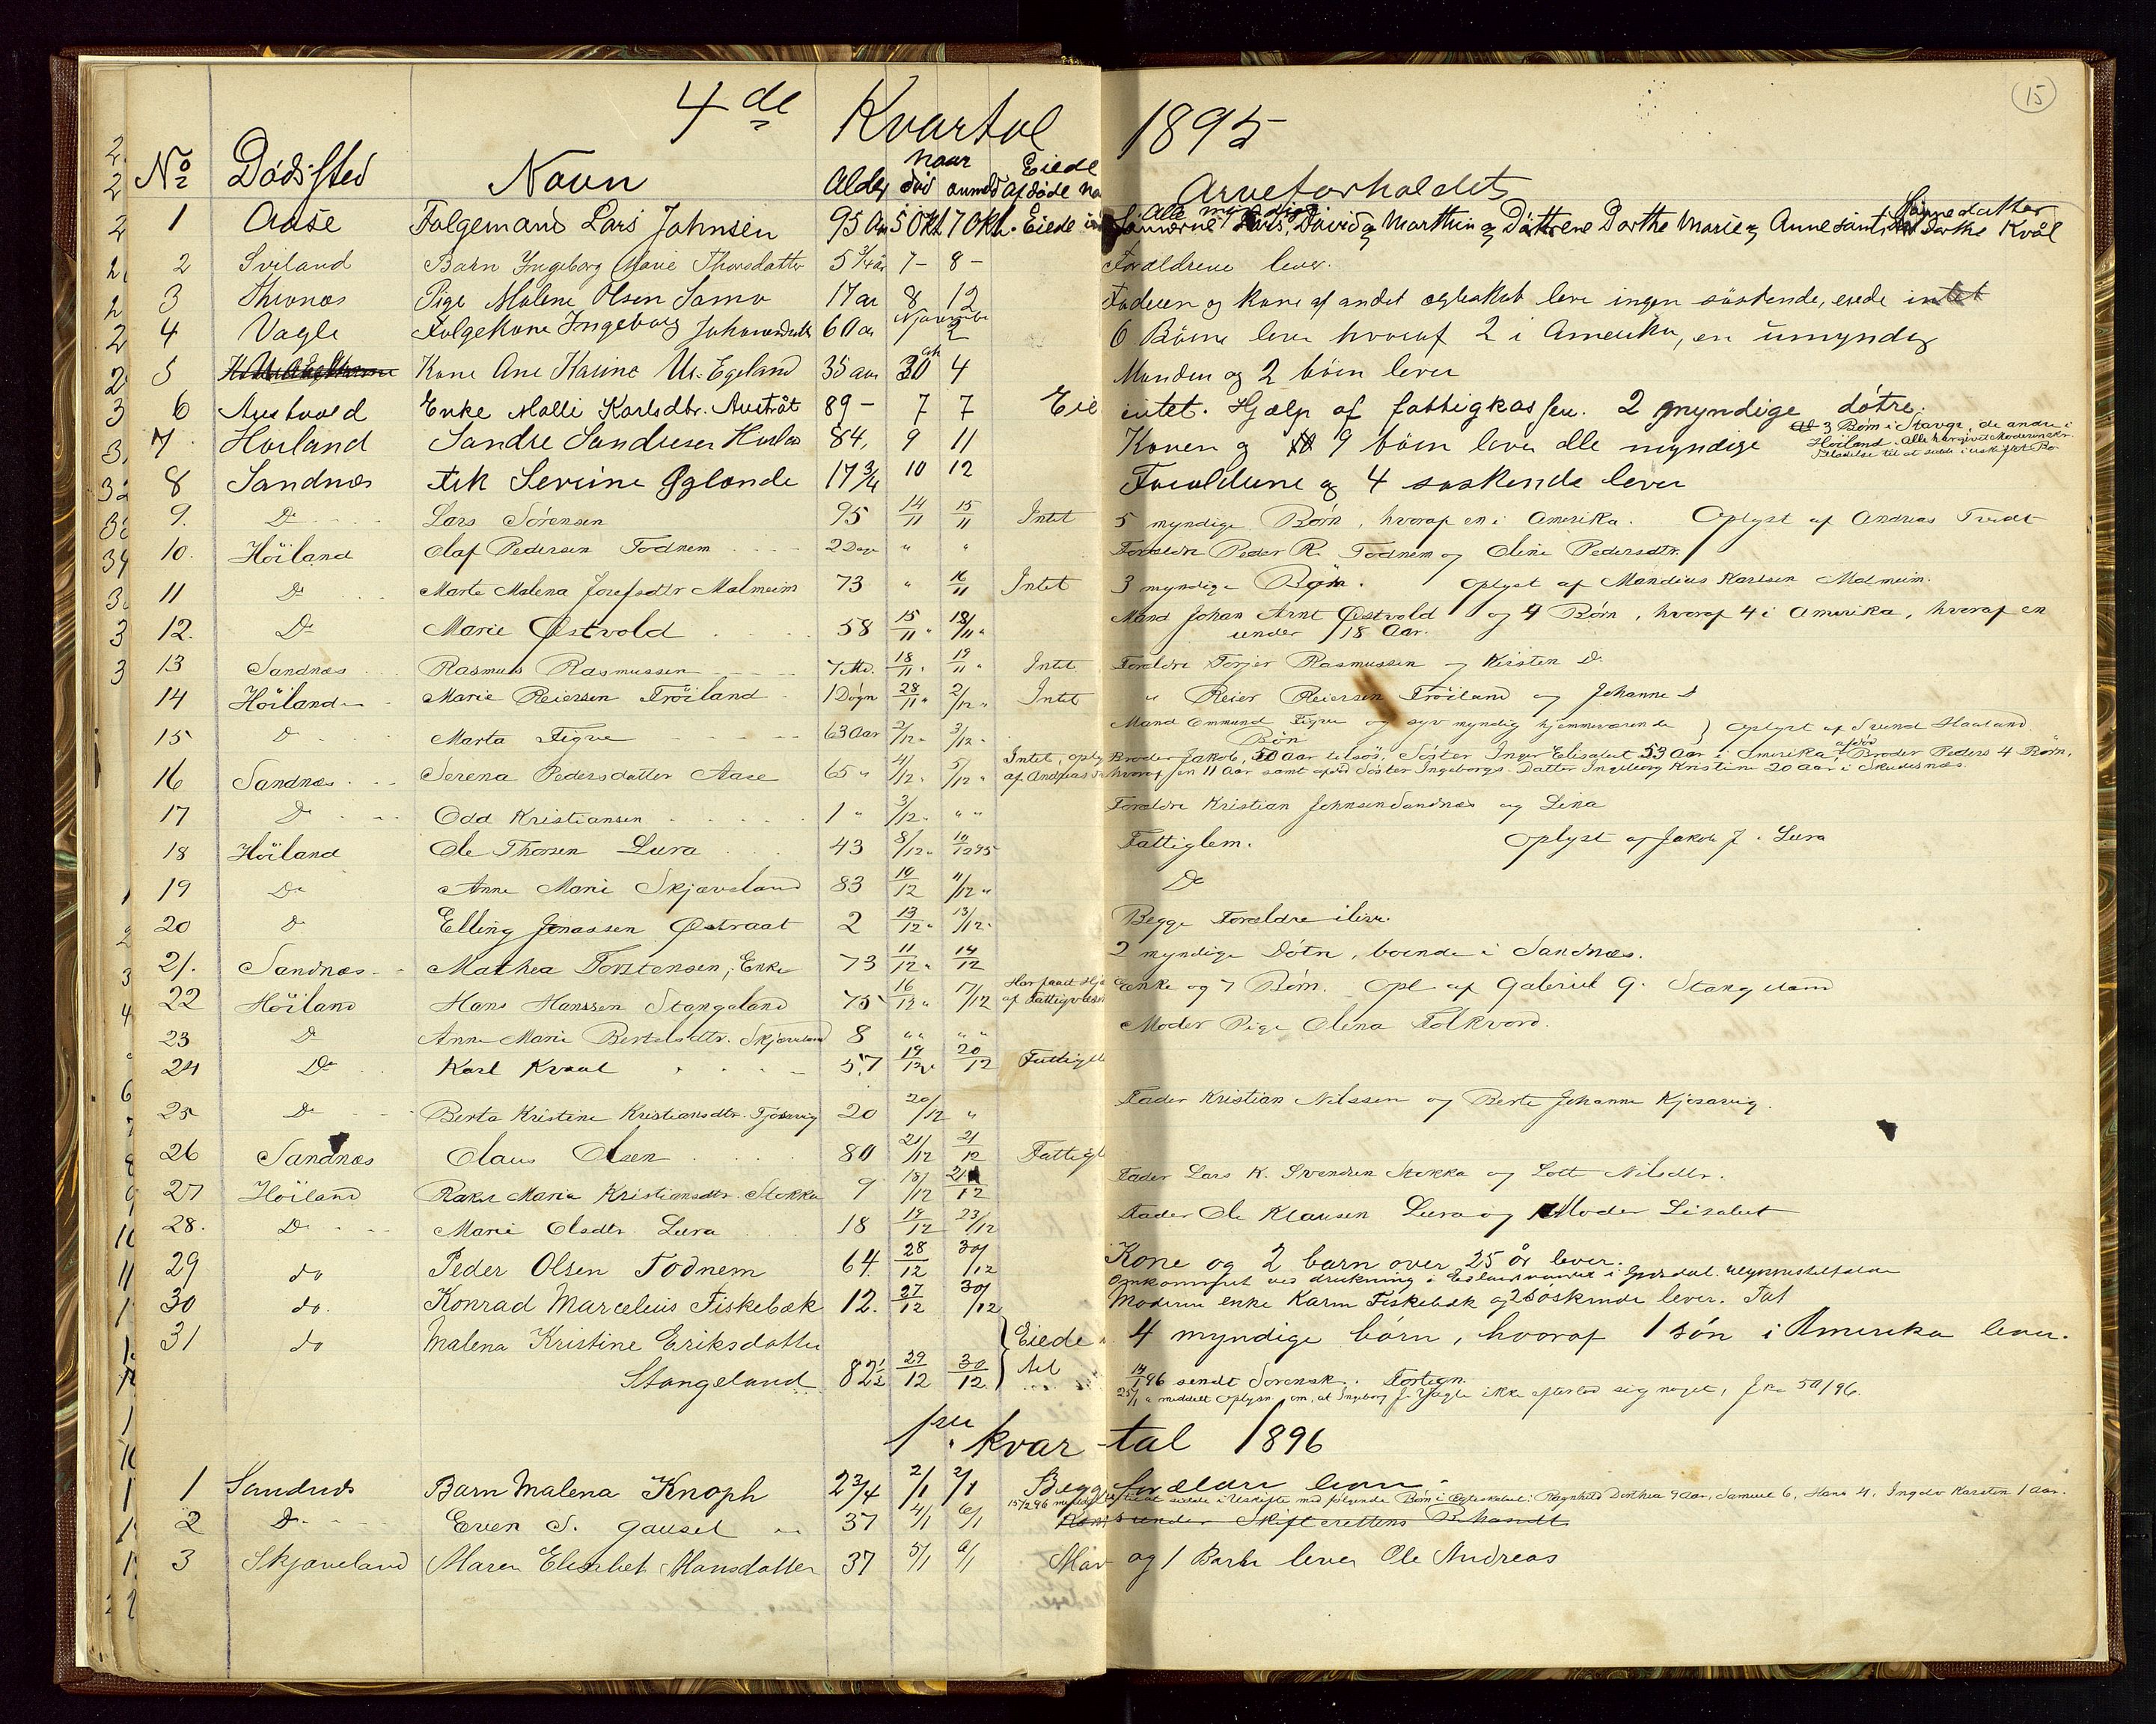 15
4de Kvartal 1895
No Dødssted Navn Alder naar død anmeldt Eiede afdøde no Arveforholdet
1 Aase Folgemand Lars Johnsen 95 Aar 5 Okt 7 Okt. Eiede Alle myndige Sønnerne Lars, David og Marthin og Døttrene Dorthe Marie og Anne samt Sønnedatter Dorthe Kvål
2 Sviland Barn Ingeborg Marie Thorsdatter 5 3/4 år 7 - 8 - Foreldrene lever.
3 Thronæs Pige Malene Olsen Somo 17 ar 8 12 Faderen og kone af andet egteskab leve ingen søskende, eiede intet
4 Vagle Folgekone Ingeborg 60 ar November 1 2 6 Börne lever hvoraf 2 i Amerika, en umyndig
5 Kone Ane Karine Ur. Egeland 35 aar 30 okt 4 Manden og 2 börn lever
6 Austvold Enke Malli Karlsdtr. Austråt 89 - 7 7 Eie intet. Hjælp af fattigkassen. 2 myndige døtre.
7 Høiland Sandre Sandresen 84, 9 11 Konen og 9 börn lever alle myndige 3 Børn i Stavgr, de andre i Høiland. Alle har givet Moderen
8 Sandnæs Frk Serine Gglænde 17 3/4 10 12 Foreldrene og 4 søskende lever
9. Do Lars Sørensen 95 14/11 15/11 Intet 5 myndige Børn, hvoraf en i Amerika. Oplyst af Andreas Tvedt
10. Höiland Olaf Pedersen Todnem 2 Dage " " Foreldre Peder R. Todnem og Oline Pedersdtr.
11 Do Marte Malena Josefsdtr Malmeim 73 " 16/11 Intet 3 myndige Børn. Oplyst af Mandius Karlsen Malmeim.
12. Do Marie Østvold 58 15/11 " 18/11 " Mand Johan Arnt Østvold og 4 Børn, hvoraf 4 i Amerika, hvoraf en
under 18 Aar.
13 Sandnæs Rasmus Rasmussen 7 Md. 18/11 " 19/11 " Intet Foreldre Torjer Rasmussen og Kirsten Do
14 Höiland Marie Reiersen Tröiland 1 Døgn 28/11 " 2/12 " Intet " Reier Reiersen Tröiland og Johanne D
15 D Marta Figve 63 Aar 2/12 " 3/12 " Mand Ommund Figve og syv myndig hjemmeværende Børn } Oplyst af Svend Haaland
16 Sandnæs Serena Pedersdatter Aase 65 " 4/12 " 5/12 " Intet, oply af Andreas Broder Jakob, 50 Aar tilsøs, Söster Inger Elisabet 53 Aar i Amerika, afdød Broder Peders 4 Børn,
hvoraf en 11 Aar samt afdød Söster Ingeborgs Datter Ingeborg Kristine 20 Aar i Skudesnæs.
17 Do Odd Kristiansen 1 " 3/12 " " " Foreldre Kristian Johnsen Sandnæs og Lina
18 Höiland Ole Thorsen Lura 43 8/12 " 10/12 95 Fattiglem. Oplyst af Jakob J. Lura
19 Do Anne Marie Skjæveland 83 10/12 11/12 " Do
20 D Elling Jonassen Østraat 2 13/12 " 13/12 " Begge Foreldre ilive.
21. Sandnæs Mathea Torstensen, Enke 73 11/12 " 14/12 2 myndige Døtre, boende i Sandnæs.
22 Höiland Hans Hanssen Stangeland 75 16/12 " 17/12 Har faaet Hjæ af Fattigvæsen Enke og 7 Børn. Opl af Gabriel G. Stangeland
23 D Anne Marie Bertelsdtr. Skjæveland 8 " " " " Moder Pige Olena Folkvord.
24 Do Karl Kvaal 57 19/12 " 20/12 Fattigl
25 Do Berta Kristine Kristiansdtr. Kjosavig 20 20/12 " Fader Kristian Nilssen og Berte Johanne Kjosavig.
26 Sandnæs Olaus Olsen 80 21/12 21/12 Fattigl
27 Höiland Rakel Maria Kristiansdtr. Stokka 9 18/12 21/12 Fader Lars K. Svendsen Stokka og Lott Nilsdtr.
28. D Marie Olsdtr Lura 18 19/12 23/12 Fader Ole Klausen Lura og Moder Lisabet
29 do Peder Olsen Todnem 64. 28/12 30/12 Kone og 2 barn over 25 år lever.
30 do. Konrad Marcelius Fiskebæk 12. 27/12 30/12 Omkommet ved drukning i i Gjesdal.
Moderen enke Karen Fiskebæk og 2 söskende lever. Fat
31 do Malena Kristine Eriksdatter
Stangeland 82 1/2 29/12 30/12 Eiede 4 myndige börn, hvoraf 1 sön i Amerika lever.
14/1 96 sendt Sorensk. Fortegn.
25/1 " meddelt Oplysn. om, at Ingeborg J. Vagle ikke efterlod sig noget, J.n. 50/96.
1ste kvartal 1896
1 Sandnæs Barn Malena Knoph 2 3/4 2/1 2/1 Begge foreldre lever.
2 D Even S. Gausel 37 4/1 6/1 15/2 96 i Uskifte med følgende Børn i Egteskabet: Ragnhild Dorthea 9 Aar, Samuel 6, Hans 4, Ingolv Karsten 1 Aar.
under Skifterettens Behandl.
3 Skjæveland Maren Elisabet Hansdatter 37 5/1 6/1 Man og 1 Barn lever Ole Andreas